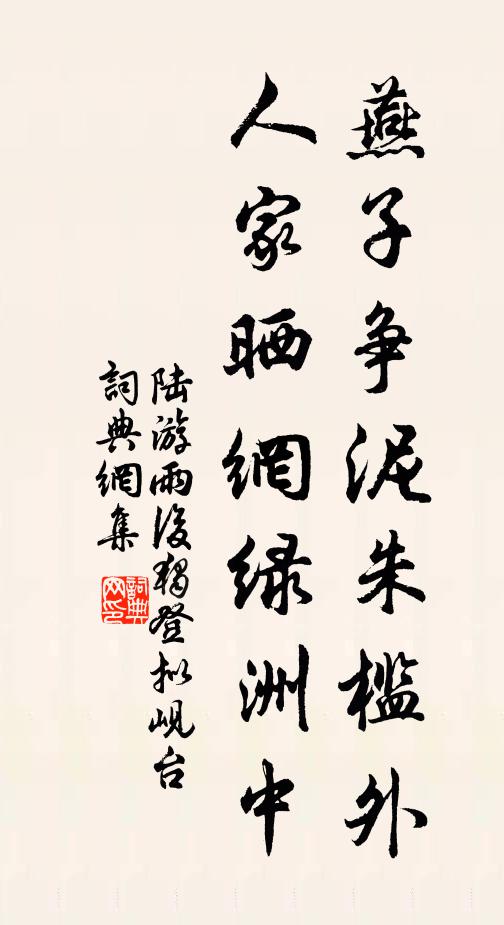 燕子争泥朱槛外
人家晒網绿洲中
陆游雨後獨登拟岘台
詞典網集
詞典網印